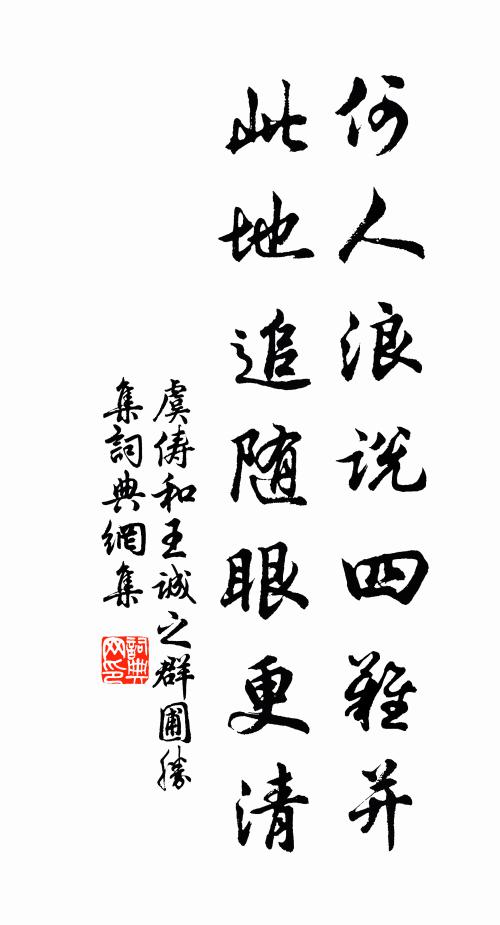 何人浪说四难并
此地追随眼更清
虞俦和王诚之群圃勝
集詞典網集
詞典网印